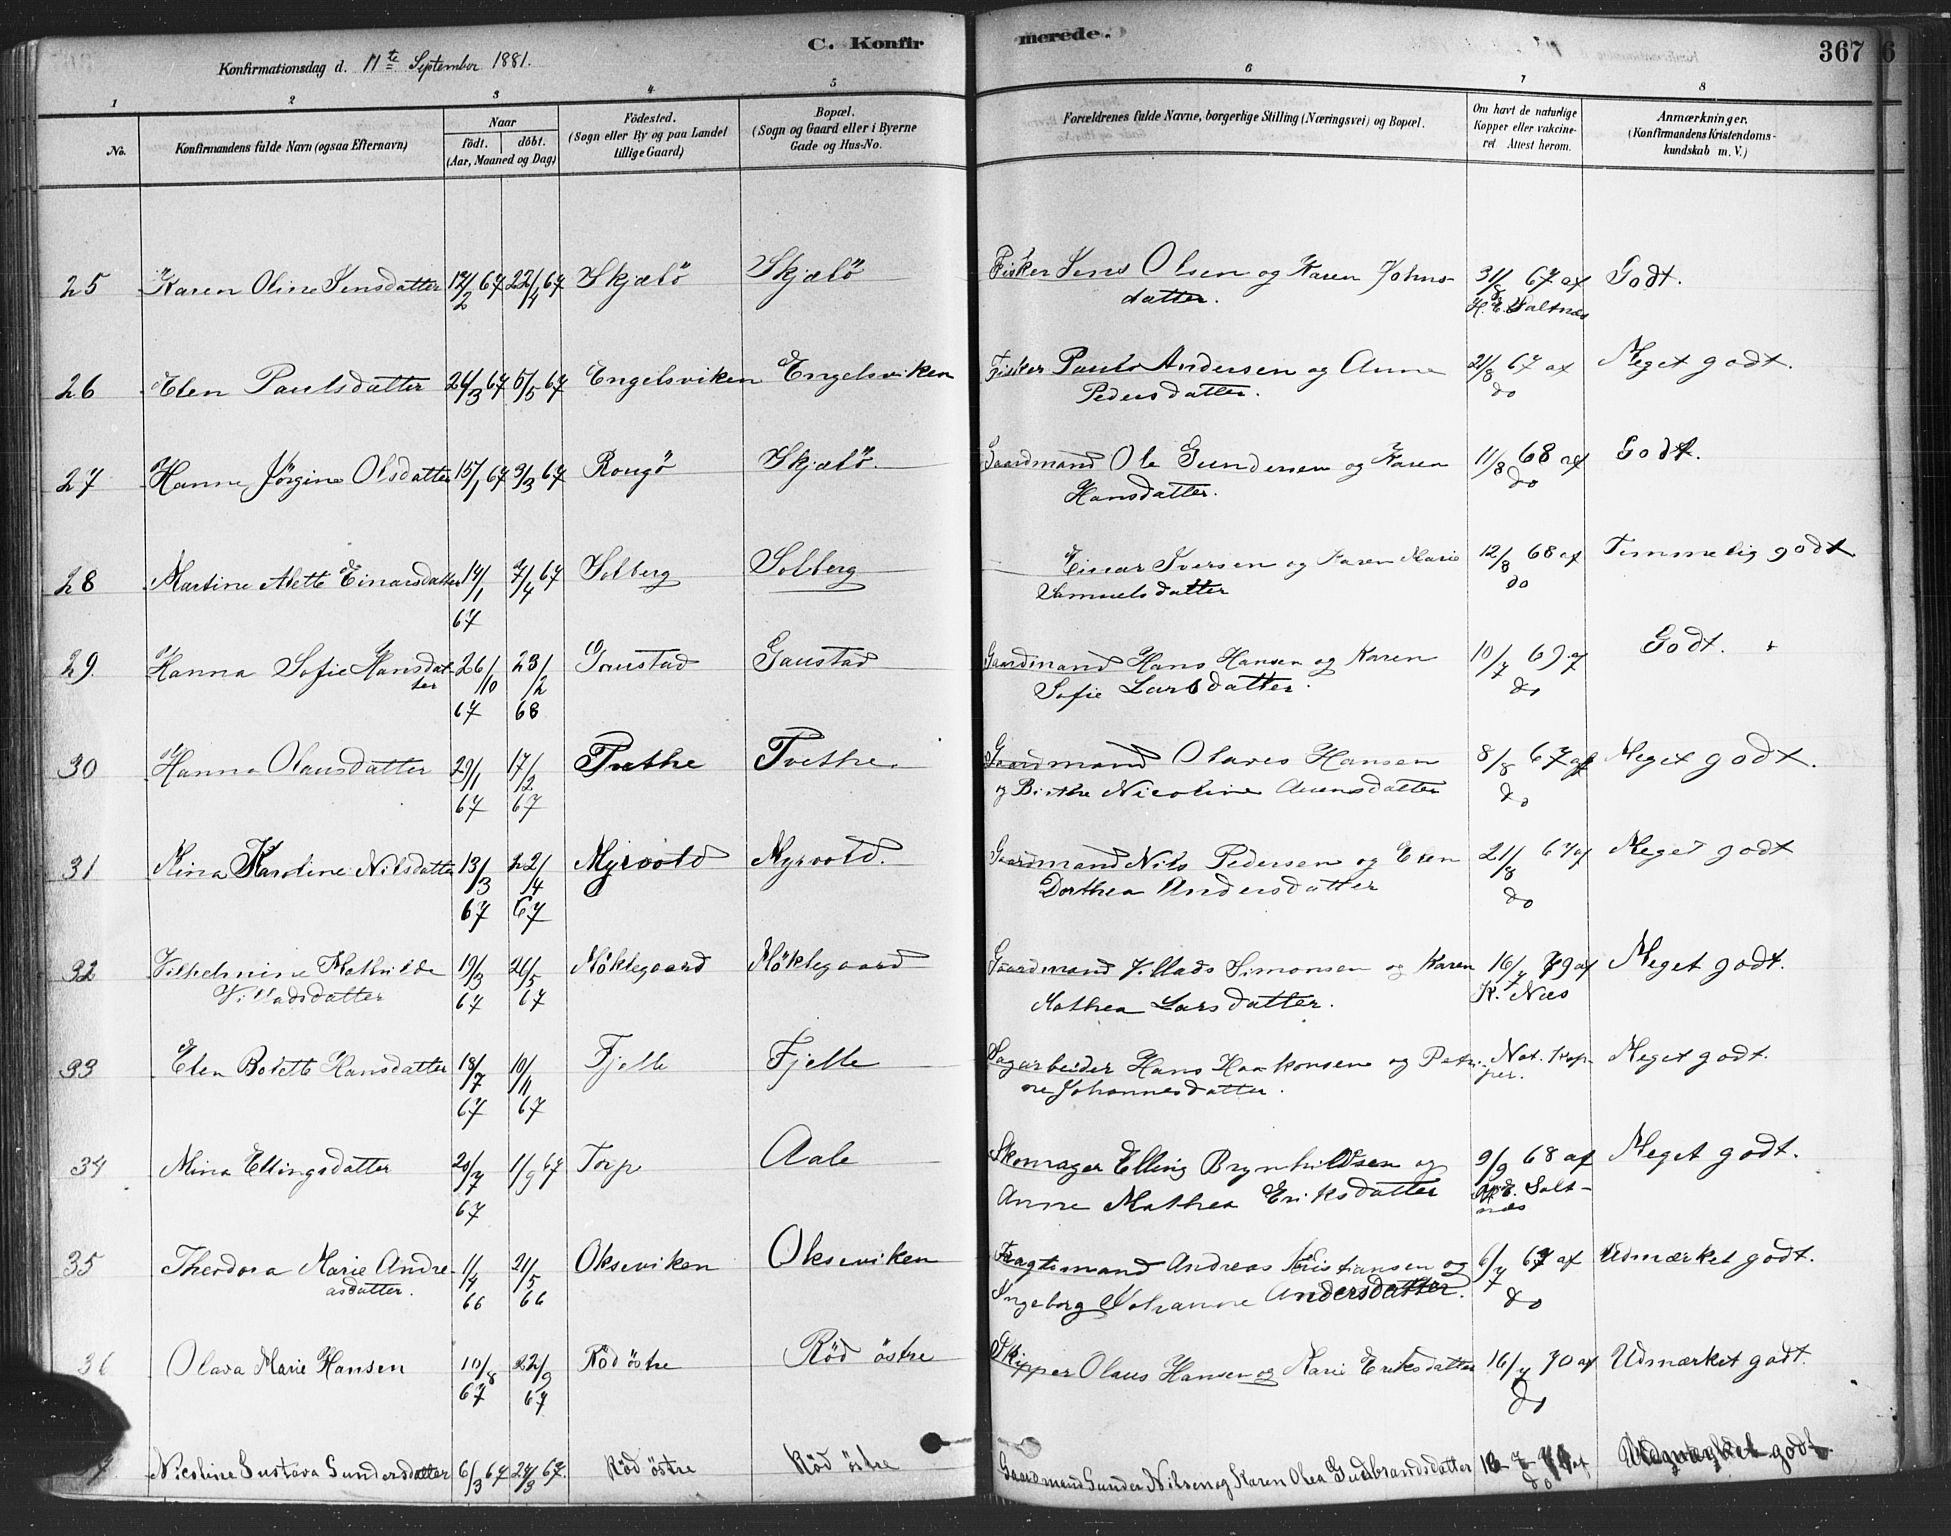 C. Konfirmerede.
367
6
Konfirmationsdag d. 11te September 1881.
1 2 3 4 5 6 7 8
No.
Konfirmandens fulde Navn (ogsaa Efternavn)
Naar
født. døbt.
(Aar, Maaned og Dag)
Fødested.
(Sogn eller By og paa Landet
tillige Gaard)
Bopæl.
(Sogn og Gaard eller i Byerne
Gade og Hus-No.
Forældrenes fulde Navne, borgerlige Stilling (Næringsvei) og Bopæl.
Om havt de naturlige
Kopper eller vakcine-
ret. Attest herom.
Anmærkninger.
(Konfirmandens Kristendoms-
kundskab m. V.)
25 Karen Oline Jensdatter 12/2 67 22/4 67 Skjælö Skjælö Fisker Jens Olsen og Karen Johns- 31/8 67 af Godt.
datter. H. E. Saltnæs
26 Elen Paulsdatter 26/3 67 5/5 67 Engelsviken Engelsviken Fisker Paul Andersen og Anne 21/8 67 af Meget godt.
Pedersdatter. do
27 Hanne Jörgine Olsdatter 15/1 67 3/3 67 Rougö Skjælö. Gaardmand Ole Gundersen og Karen 11/8 68 af Godt.
Hansdatter. do
28 Martine Alette Einarsdatter 14/1 7/4 67 Solberg Solberg Einar Iversen og Karen Marie 12/8 68 af Temmelig godt
67 Samuelsdatter do
29. Hanna Sofie Hansdat- 26/10 23/2 Gaustad Gaustad Gaardmand Hans Hansen og Karen 10/7 69 af Godt.
ter 67 68 Sofie Larsdatter. do
30 Hanna Olausdatter 29/1 17/2 Tvethe Tvethe Gaardmand Olaves Hansen 8/8 67 af Meget godt.
67 67 og Birthe Nicoline Arensdatter do
31 Mina Karoline Nilsdatter 13/3 22/4 Myrvold Myrvold. Gaardmand Nils Pedersen og Elen 21/8 67 af Meget godt
67 67 Dorthea Andersdatter do
32 Vilhelmine Mathilde 19/3 26/5 Nöklegaard Nöklegaard Gaardmand Villads Simonsen og Karen 16/7 79 af Meget godt.
Villadsdatter 67 67 Mathea Larsdatter. K. Næs
33 Elen Bolette Hansdatter 18/7 10/11 Fjelle Fjelle Sagarbeider Hans Haakonsen og Petri- Nat. Kop- Meget godt.
67 67 ne Johannesdatter. per.
34 Mina Ellingsdatter 20/7 1/9 67 Torp Aale Skomager Elling Brynhildsen og 9/9 68 af Meget godt.
67 Anne Mathea Eriksdatter H. E. Salt-
næs
35 Theodora Marie Andre- 11/4 21/5 Okseviken Okseviken Fragtmand Andreas Kristiansen og 6/7 67 af Udmærket godt.
asdatter. 66 66 Ingeborg Johanne Andersdatter. do
36 Olava Marie Hansen 10/8 22/9 Röd östre Röd östre Skipper Olaus Hansen og Marie Eriksdatter 16/7 70 af Udmærket godt.
67 67 do
Nicoline Gustava Gundersdatter 6/3 67 24/3 67. Röd östre Röd östre Gaardmand Gunder Nilsen og Karen Olea Gudbrandsdatter Udmærket godt.
do